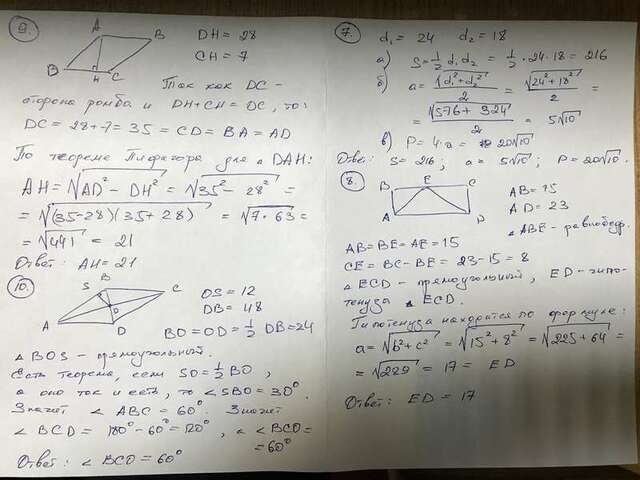 9.
A
B
H
C
B
DH = 28
CH = 7
Так как DC -
сторона ромба и DH+CH = DC, то:
DC = 28+7 = 35 = CD = BA = AD
По теореме Пифагора для △ DAH:
AH = √AD² - DH² = √35² - 28² =
= √(35-28)(35+28) = √7·63 =
= √441 = 21
Ответ: AH = 21
10.
A
S
B
O
D
C
OS = 12
DB = 48
BO = OD = 1/2 DB = 24
△ BOS - прямоугольный.
Есть теорема если SO = 1/2 BO,
а оно так и есть, то < SBO = 30°.
Значит < ABC = 60°. Значит
< BCD = 180° - 60° = 120°, а < BCD =
= 60°
Ответ: < BCD = 60°
7.
d = 24 d₂ = 18
а) S = 1/2 d₁·d₂ = 1/2 · 24·18 = 216
б) a = √d₁²+d₂² / 2 = √24²+18² / 2 =
= √576+324 / 2 = 5√10
в) P = 4·a = 20√10
Ответ: S = 216, a = 5√10; P = 20√10.
8.
B
E
C
A
D
AB = 15
AD = 23
△ ABE - равнобедр.
AB = BE = AE = 15
CE = BC - BE = 23 - 15 = 8
△ ECD - прямоугольный, ED - гипо-
тенуза △ ECD.
Гипотенуза находится по формуле:
a = √b²+c² = √15²+8² = √225+64 =
= √289 = 17 = ED
Ответ: ED = 17